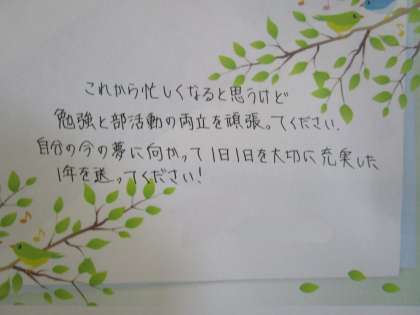 これから忙しくなると思うけど
勉強と部活動の両立を頑張ってください.
自分の今の夢に向かって1日1日を大切に充実した
1年を送ってください!